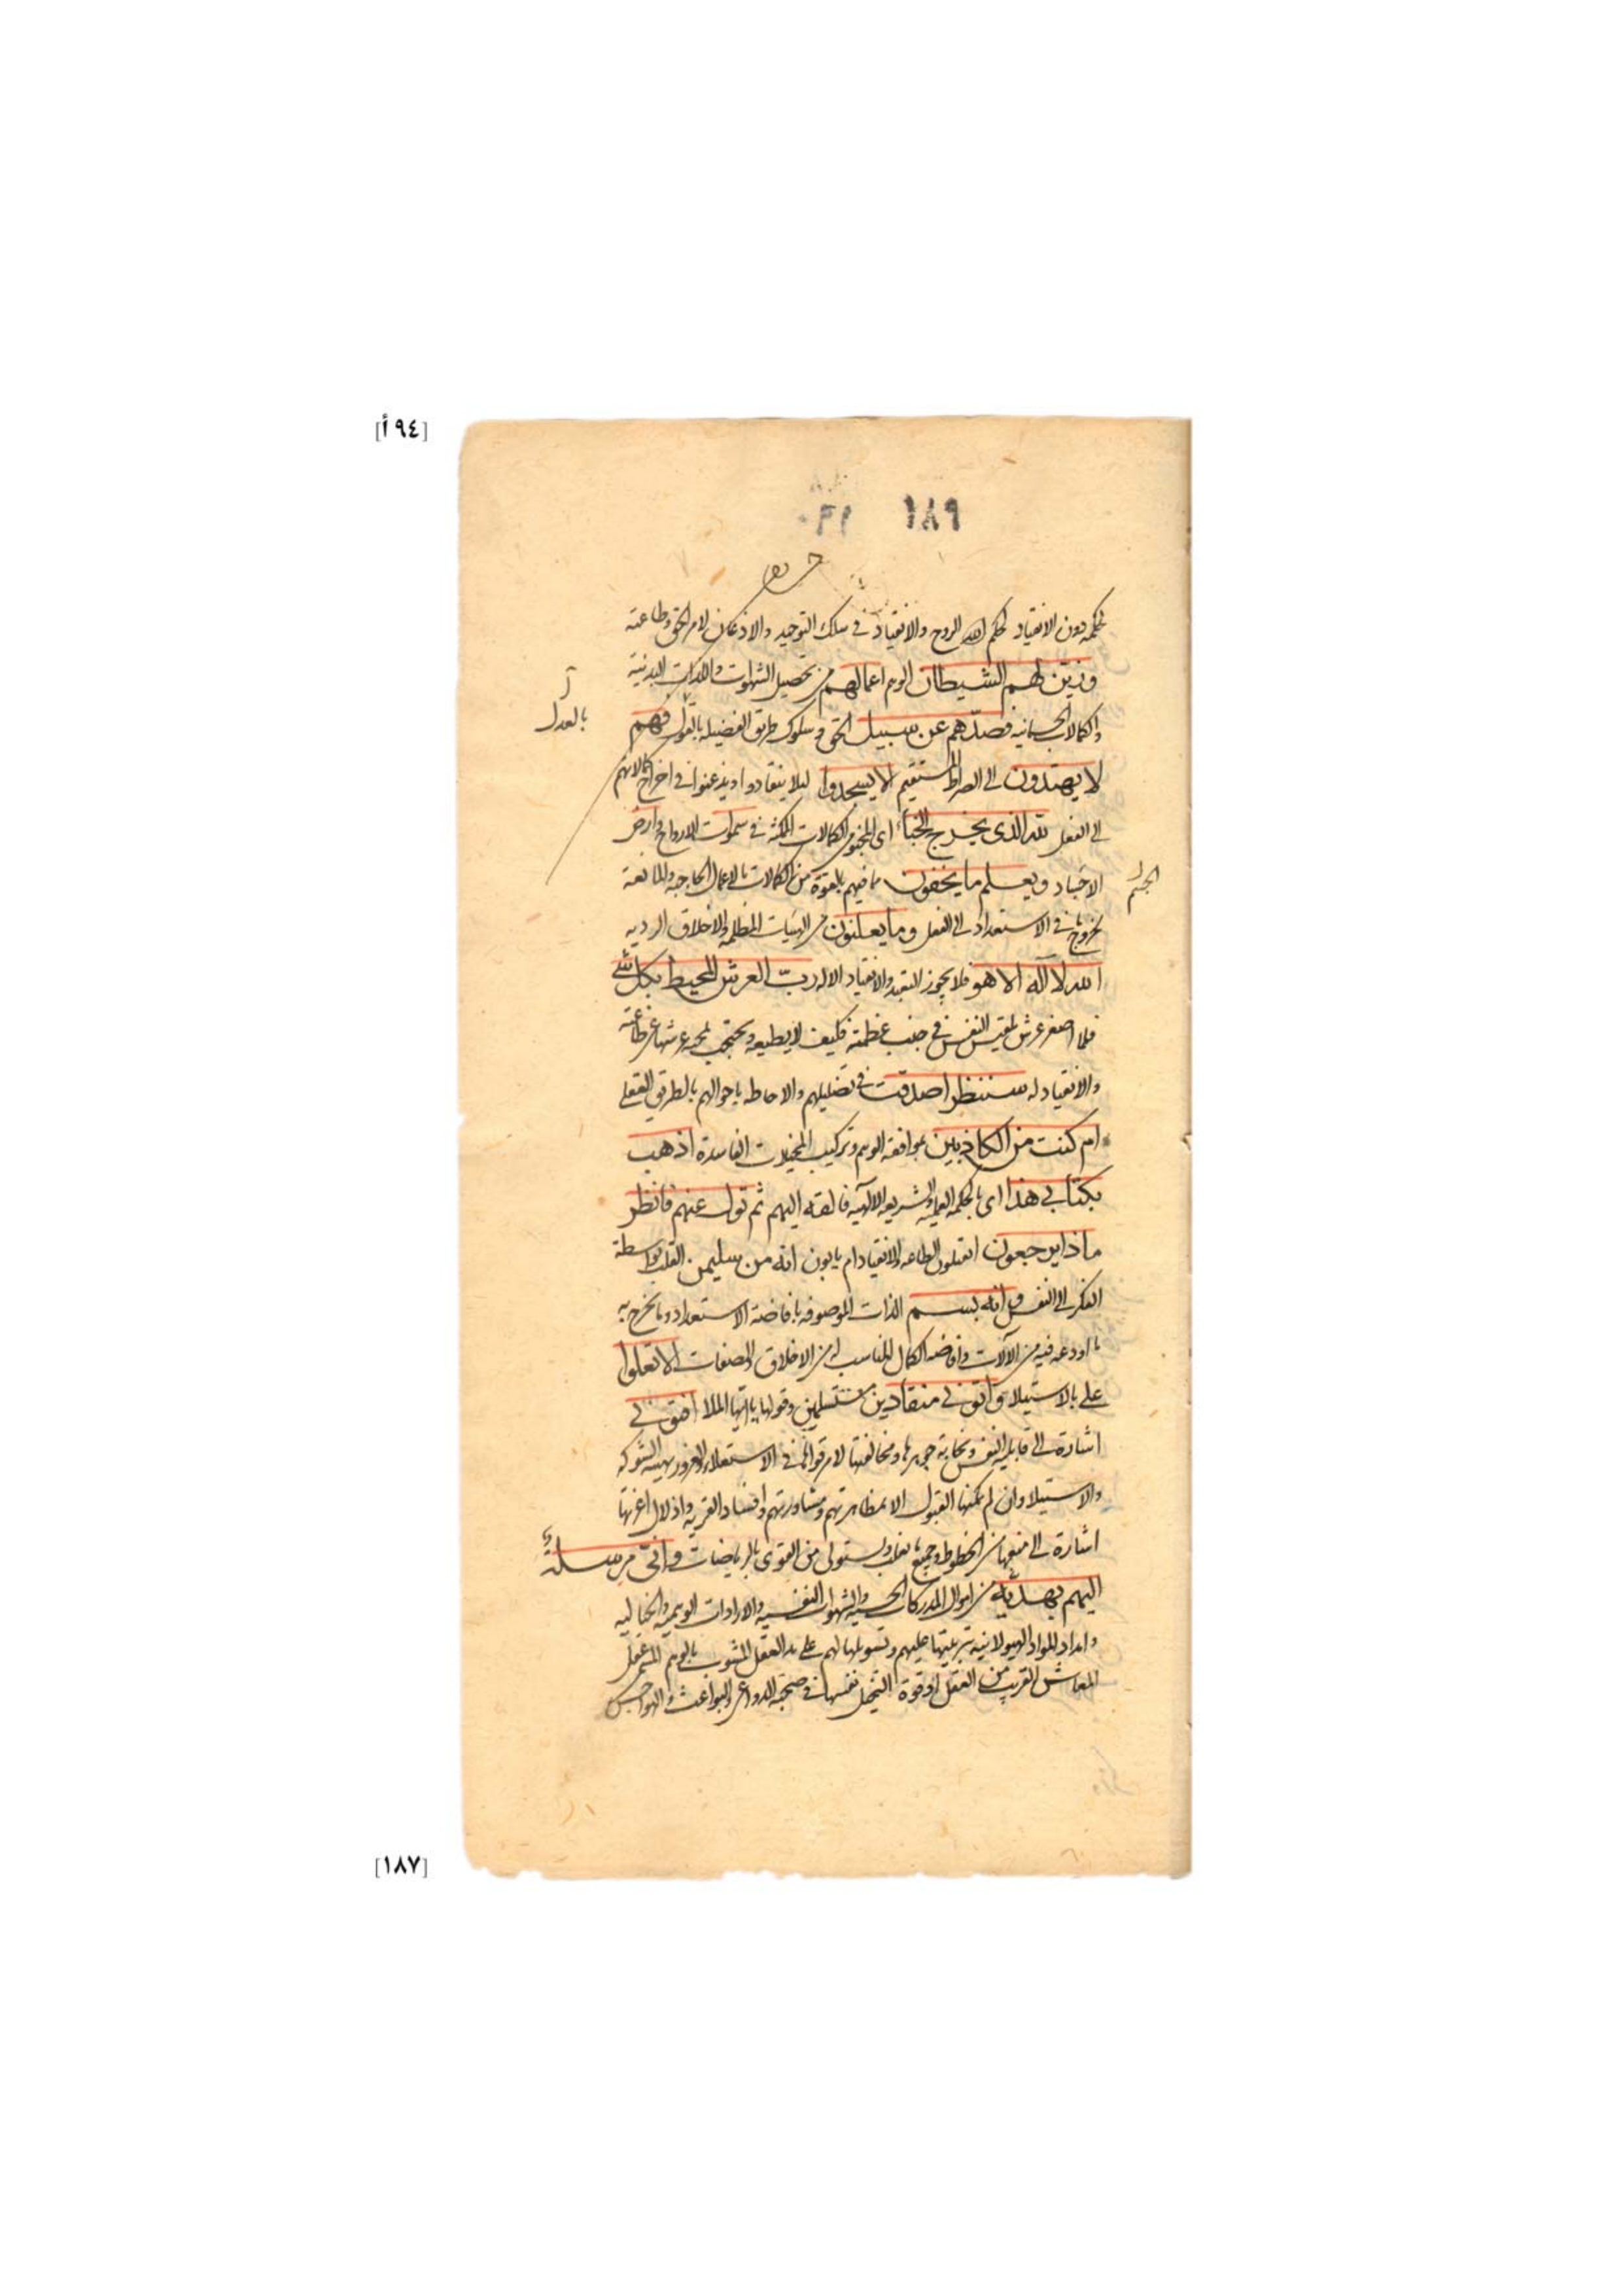 [٩٤أ]
١٨٩
بحكمه دون الانقياد لحكم الروح والانقياد في سلك التوحيد والاذعان لامر الحق وطاعته
وزين لهم الشيطان الوهم اعمالهم من تحصيل الشهوات واللذات البدنية
والكمالات الجسمانيه فصدهم عن سبيل الحق وسلوك طريق الفضيله فهم
بالعدل
لا يهتدون الى الصراط المستقيم الا يسجدوا لئلا ينقادوا ويذعنوا في اخراج كمالاتهم
الى الفعل لله الذى يخرج الخبأ اى المخبو من الكمالات الممكنة في سموات الارواح وارض
الاجساد ويعلم ما يخفون مما فيهم بالقوة من الكمالات بالاعمال الحاجبه والمانعة
الجسم
لخروج ما في الاستعداد الى الفعل وما يعلنون من الهيات المظلمه والاخلاق الرديه
الله لا اله الا هو فلا يجوز التعبد والانقياد الا له رب العرش المحيط بكل شئ
فما اصغر عرش بلقيس النفس في جنب عظمته فكيف لا يطيعه وتحتجب بمحبة عرشها عن طاعته
والانقياد له سننظر اصدقت في تضليلهم والاحاطه باحوالهم بالطريق العقلى
ام كنت من الكاذبين بموافقه الوهم وتركيب المخيلات الفاسدة اذهب
بكتابى هذا اى بالحكمه العمليه والشريعه الالهيه فالقه اليهم ثم تول عنهم فانظر
ماذا يرجعون ايقبلون الطاعه والانقياد ام يابون انه من سليمن القلب بواسطة
الفكر الى النفس وانه بسم الذات الموصوفه بافاضة الاستعداد وما يخرج به
ما اودعه فيه من الآلات وافاضه الكمال المناسب له من الاخلاق والصفات الا تعلوا
على بالاستيلا واتونى منقادين مستسلمين وقولها يا ايها الملا افتونى
اشارة الى قابليه النفس ونجابة جوهرها ومخالفتها لامر قواها في الاستعلاء والغرور بهيئه الشوكه
والاستيلا وان لم يمكنها القبول الا بمظاهرتهم ومشاورتهم وافساد القريه واذلال اعزتها
اشارة الى منعها من الحظوظ وجميع ما يغلب ويستولى من القوى بالرياضات وانى مرسلة
اليهم بهدية من اموال المدركات الحسيه والشهوات النفسيه والارادات الوهميه والخياليه
وامداد المواد الهيولانيه بتزيينها عليهم وتسويلها لهم على يد العقل المشوب بالوهم المسمى عقل
المعاش القريب من العقل او قوة التخيل نفسها في صحبة الدواعى والبواعث والهواجس
[١٨٧]